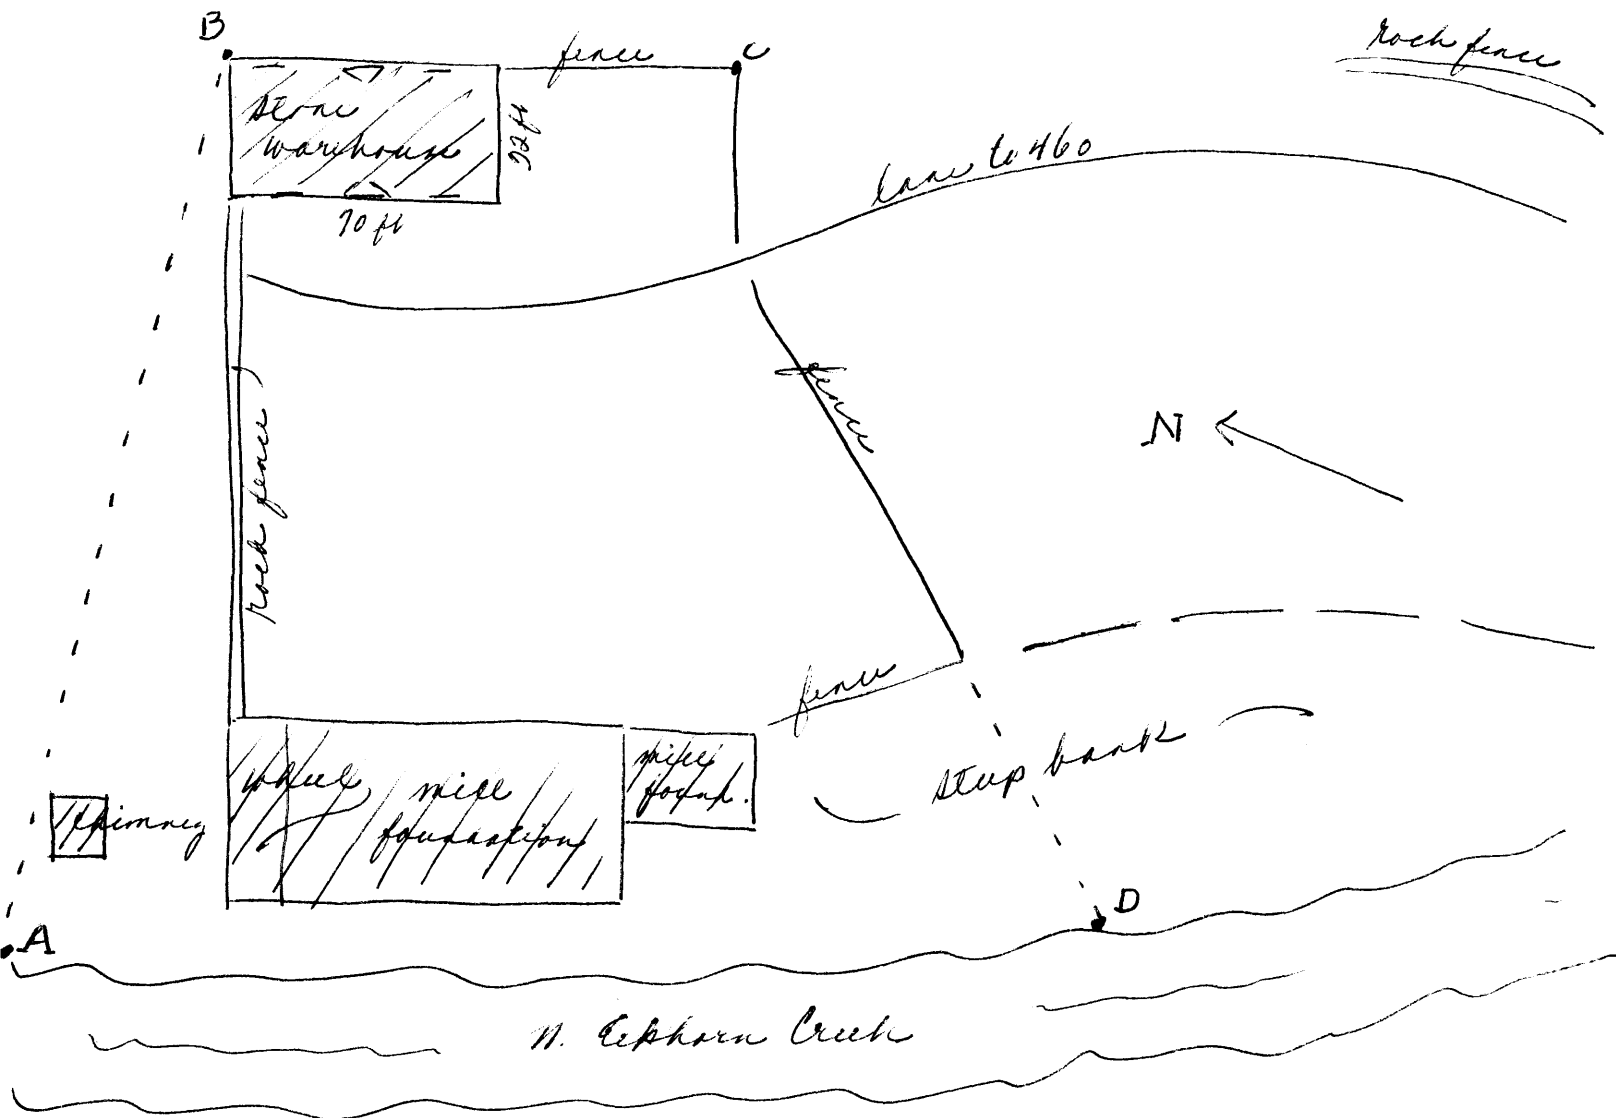 B
fence
C
rock fence
stone
warehouse
32 ft
70 ft
lane to 460
fence
rock fence
N
fence
wheel
mill
foundation
mill
found.
steep bank
chimney
D
A
N. Elkhorn Creek